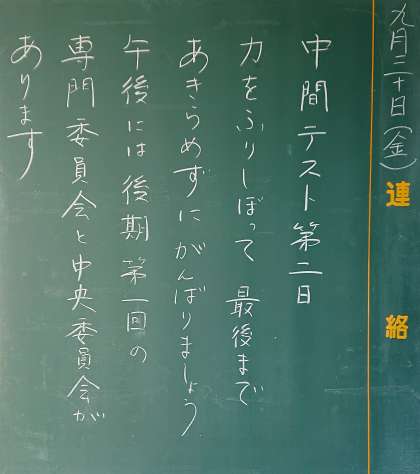 九月二十日(金)
連絡
中間テスト第二日
力をふりしぼって 最後まで
あきらめずにがんばりましょう
午後には後期 第一回の
専門委員会と中央委員会が
あります